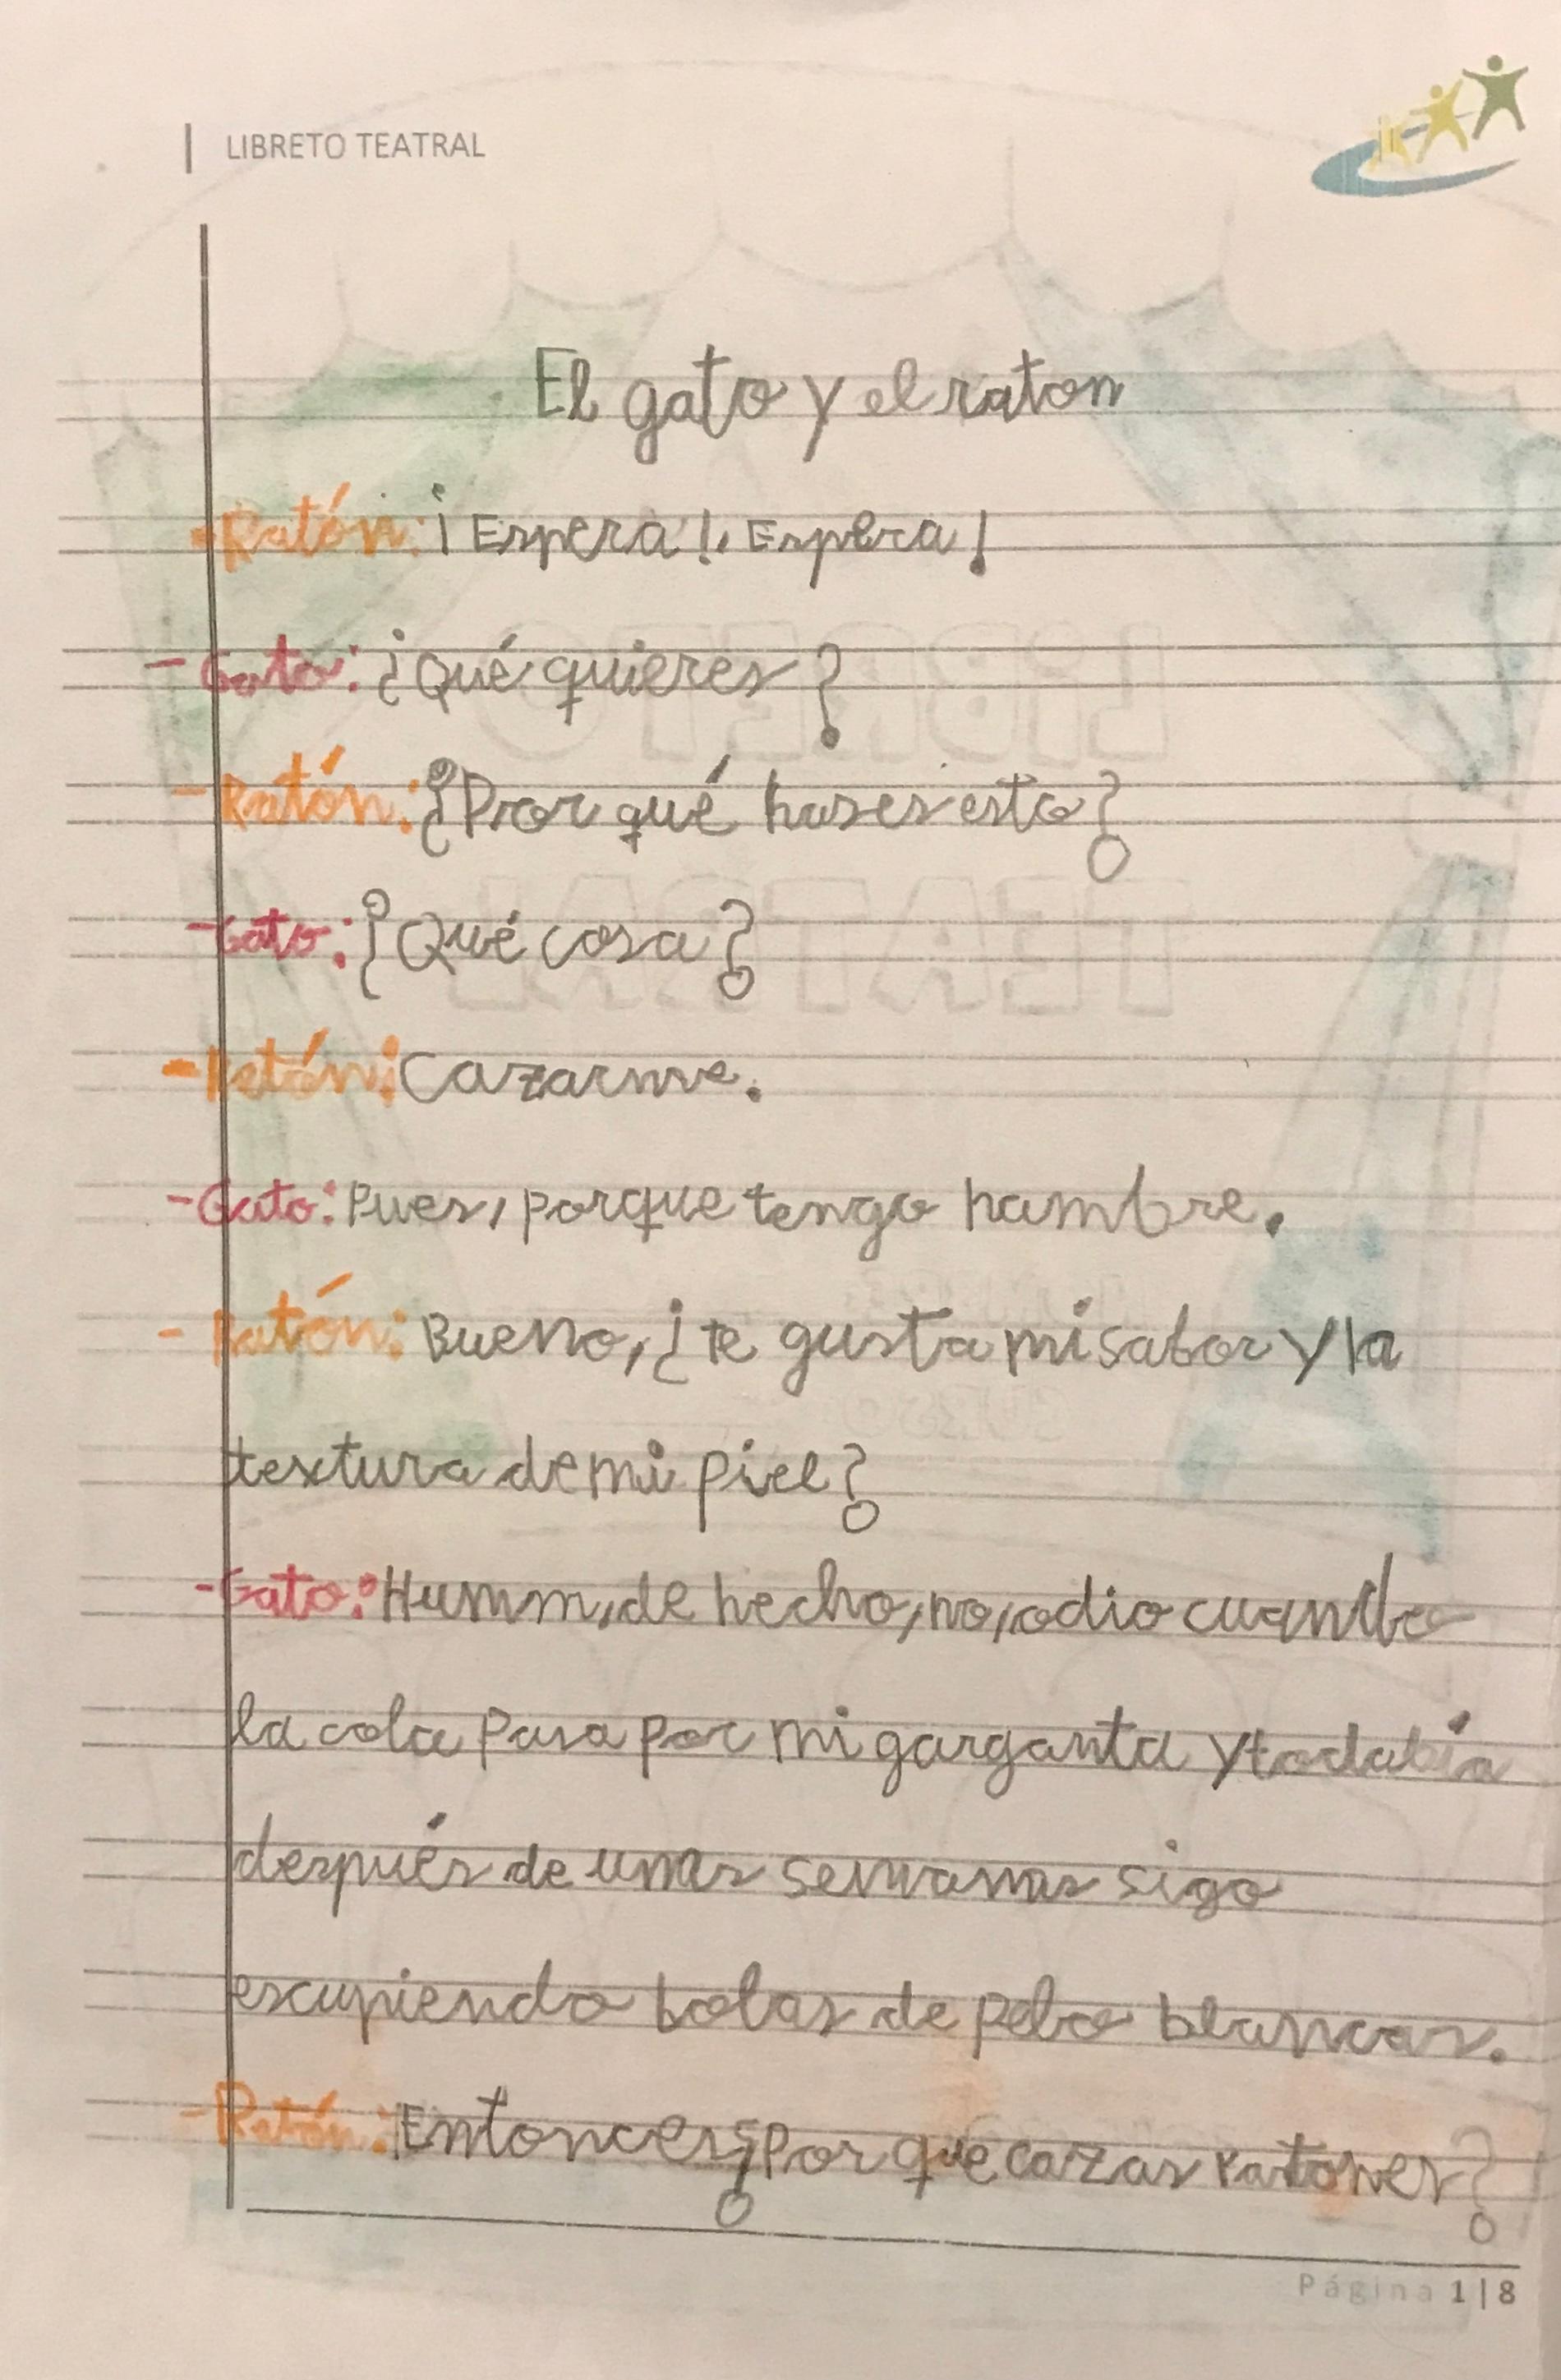 LIBRETO TEATRAL
El gato y el raton
-Ratón: ¡Espera!, Espera!
-Gato: ¿Qué quieres?
-Ratón: ¿Por qué hases esto?
-Gato: ¿Qué cosa?
-Ratón: Cazarme.
-Gato: Pues, porque tengo hambre.
-Ratón: Bueno, ¿te gusta mi sabor y la
textura de mi piel?
-Gato: Humm, de hecho, no, odio cuando
la cola pasa por mi garganta y todabía
después de unas semanas sigo
escupiendo bolas de pelo blancas.
-Ratón: Entonces ¿Por que cazas ratones?
Página 1|8